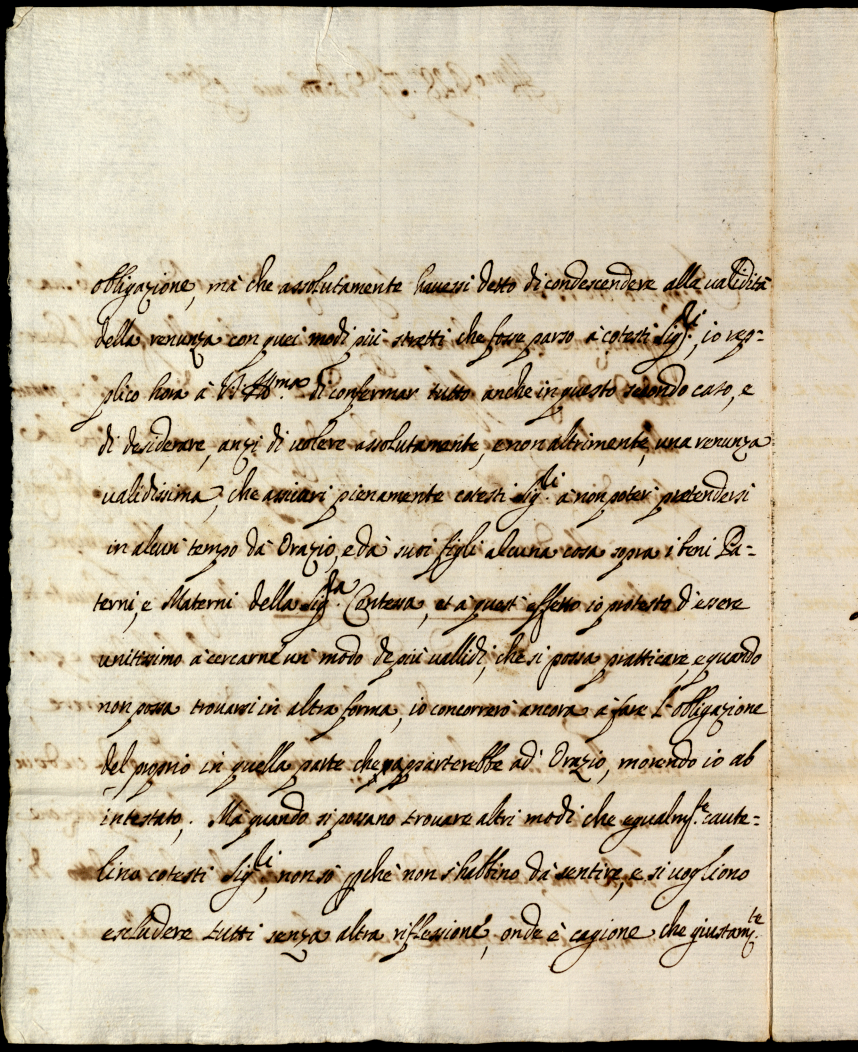 obbligazione, mà che assolutamente havessi detto di condescendere alla validità
della renunza con quei modi più stretti che fosse parso à cotesti Sig.ri, io rep=
plico hora à V. S. Ill.ma di confermar tutto anche in questo secondo caso, e
di desiderare, anzi di volere assolutamente, e non altrimente, una renunza
validissima, che assicuri pienamente cotesti Sig.ri à non poter pretendersi
in alcun tempo dà Orazio, e dà suoi figli alcuna cosa sopra i beni Pa=
terni, e Materni della Sig.ra Contessa, et à quest' effetto io protesto d'essere
unitissimo à cercarne un' modo de più vallidi, che si possa pratticare, e quando
non possa trovarsi in altra forma, io concorrerò ancora à fare l'obbligazione
del proprio in quella parte che apparterebbe ad' Orazio, morendo io ab
intestato; Mà quando si possano trovare altri modi che egualm.te caute=
lino cotesti Sig.ri, non sò perche non s'habbino dà sentire, e si vogliono
escludere tutti senza altra riflessione, onde è cagione che giustam.te